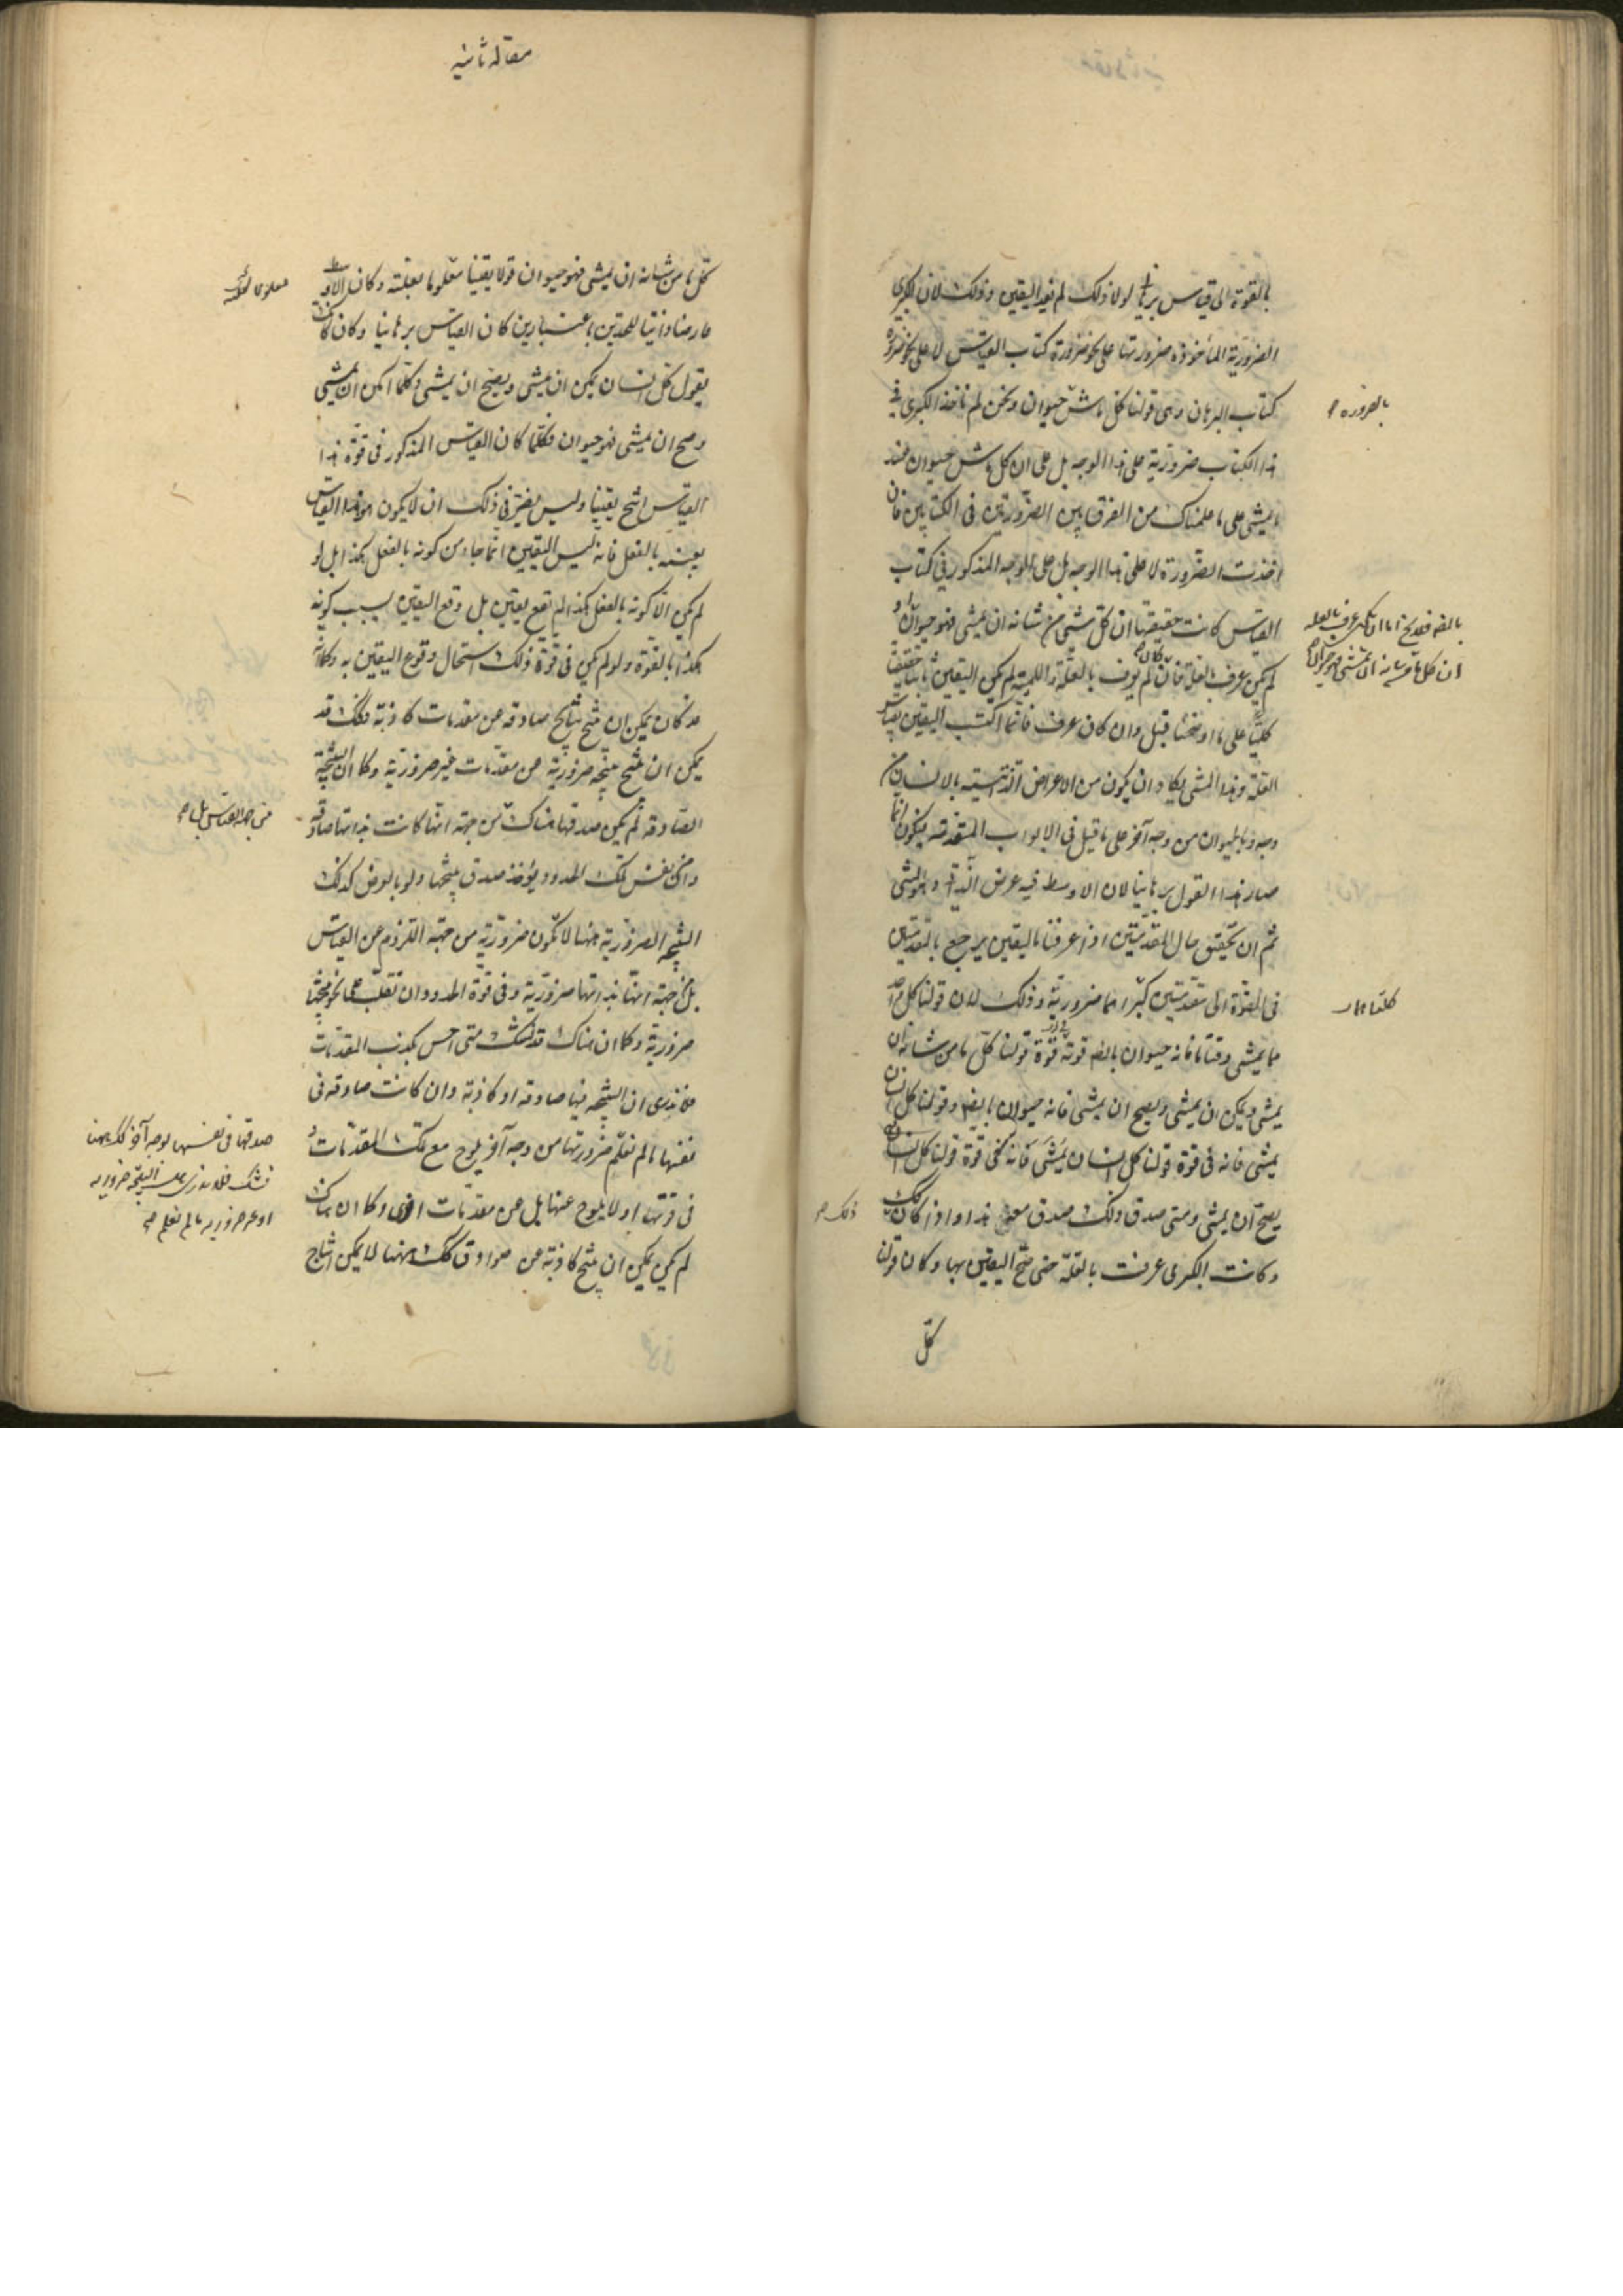 بالقوة الى قياس برهانى لولا ذلك لم يفد اليقين وذلك لان الكبرى
الضرورية المأخوذة ضرورتها على نحو ضرورة كتاب القياس لا على نحو ضرورة
كتاب البرهان وهى قولنا كل ماش حيوان ونحن لم ناخذ الكبرى فى
بالضرورة
هذا الكتاب ضرورية على هذا الوجه بل على ان كل ماش حيوان عند
ما يمشى على ما علمناك من الفرق بين الضرورتين فى الكتابين فان
اخذت الضرورة لا على هذا الوجه بل على الوجه المذكور فى كتاب
القياس كانت حقيقتها ان كل شى من شانه ان يمشى فهو حيوان
ان كل ما من شانه ان يمشى فهو حيوان
لم يكن عرف بالعلة فان كان لم يعرف بالعلة واللمية لم يكن اليقين ثابتا حقيقيا
كليا على ما اوضحنا قبل وان كان عرف فانما اكتسب اليقين بقياس
العلة وهذا المشى يكاد ان يكون من الاعراض الذاتية بالانسان من
وجه وبالحيوان من وجه آخر على ما قيل فى الابواب المتقدمة فيكون انما
صار هذا القول برهانيا لان الاوسط فيه عرض ذاتى وهو المشى
ثم ان تحقيق حال المقدمتين اذا عرفتا باليقين يرجع بالمقدمتين
فى القوة الى مقدمتين كبراهما ضرورية وذلك لان قولنا كل واحد
كلتاهما
مما يمشى وقتا ما فانه حيوان بالضرورة قوته قوة قولنا كل ما من شانه ان
يمشى ويمكن ان يمشى ويصح ان يمشى فانه حيوان وقولنا كل انسان
يمشى فانه فى قوة قولنا كل انسان يمشى فانه فى قوة قولنا كل انسان
يصح ان يمشى ومتى صدق ذلك صدق معنى هذا واذا كان كذلك
ذلك
وكانت الكبرى عرفت بالعلة حتى صح اليقين بها وكان قولنا
كل
مقاله ثانيه
كل ما من شانه ان يمشى فهو حيوان قولا يقينا معلوما بعلته وكان الاوسط
عارضا ذاتيا للحدين باعتبارين كان القياس برهانيا وكان كانه
يقول كل انسان يمكن ان يمشى ويصح ان يمشى وكلما امكن ان يمشى
وصح ان يمشى فهو حيوان فكلما كان القياس المذكور فى قوة هذا
القياس انتج يقينا وليس يضر فى ذلك ان لا يكون هو هذا القياس
بعينه بالفعل فانه ليس اليقين انما جاء من كونه بالفعل هكذا بل لو
لم يكن الا كونه بالفعل هكذا لم يقع يقين بل وقع اليقين بسبب كونه
هكذا بالقوة ولو لم يكن فى قوة ذلك استحال وقوع اليقين به وكما انه
قد كان يمكن ان ينتج نتايج صادقة من مقدمات كاذبة فكذلك قد
يمكن ان ينتج نتيجة ضرورية من مقدمات غير ضرورية وكما ان النتيجة
الصادقة لم يكن صدقها هناك من جهة انها كانت بذاتها صادقة
من جهة القياس بل
وان نقض تلك الحدود ويؤخذ صدق نتيجتها ولو بالعرض كذلك
النتيجة الضرورية ههنا لا تكون ضرورية من جهة اللزوم عن القياس
بل من جهة انها بذاتها ضرورية وفى قوة الحدود ان تقلب على نحو ينتجها
ضرورية وكما ان هناك قد يشك متى احس بكذب المقدمات
فلا يدرى ان النتيجة منها صادقة او كاذبة وان كانت صادقة فى
نفسها ما لم نعلم ضرورتها من وجه آخر يلوح مع تلك المقدمات
صدقها فى نفسها بوجه آخر كذلك ههنا
او غير ضرورية ما لم نعلم
فى قوتها او لا يلوح عنها بل من مقدمات اخرى وكما ان هناك
لم يكن يمكن ان ينتج كاذبة من صوادق كذلك ههنا لا يمكن انتاج